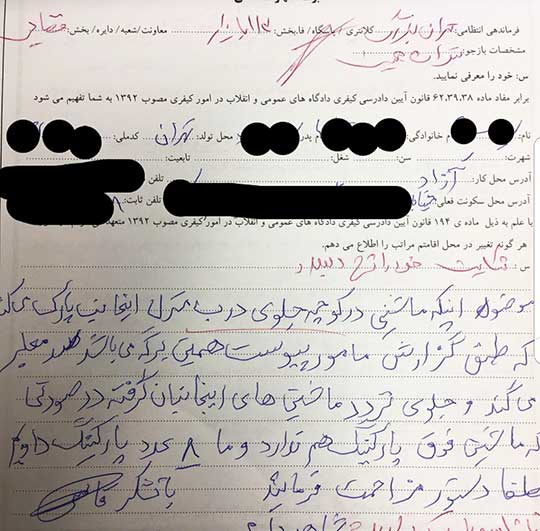 فرماندهی انتظامی: تهران بزرگ کلانتری/ پاسگاه/ فا.بخش: ۱۱۳ بازار معاونت/شعبه/ دایره/ بخش:
مشخصات بازجو:
س: خود را معرفی نمایید.
برابر مفاد ماده ۶۲،۳۹،۳۸ قانون آیین دادرسی کیفری دادگاه های عمومی و انقلاب در امور کیفری مصوب ۱۳۹۲ به شما تفهیم می شود
نام: نام خانوادگی: نام پدر محل تولد: تهران کدملی:
شهرت: سن: شغل: تابعیت:
آدرس محل کار: آزاد تلفن
آدرس محل سکونت فعلی: تلفن ثابت: ۸
با علم به ذیل ماده ی ۱۹۴ قانون آیین دادرسی کیفری دادگاه های عمومی و انقلاب در امور کیفری مصوب ۱۳۹۲ متعهد
هر گونه تغییر در محل اقامتم مراتب را اطلاع می دهم.
س: شکایت خود را شرح دهید
موضوع اینکه ماشینی در کوچه جلوی درب منزل اینجانب پارک می کند
که طبق گزارش مامور پیوست همین برگه می باشد سد معبر
می کند و جلوی تردد ماشین های اینجانبان گرفته در صورتی
که ماشین فوق پارکینگ هم ندارد و ما ۸ عدد پارکینگ داریم
لطفا دستور مزاحمت فرمایند با تشکر